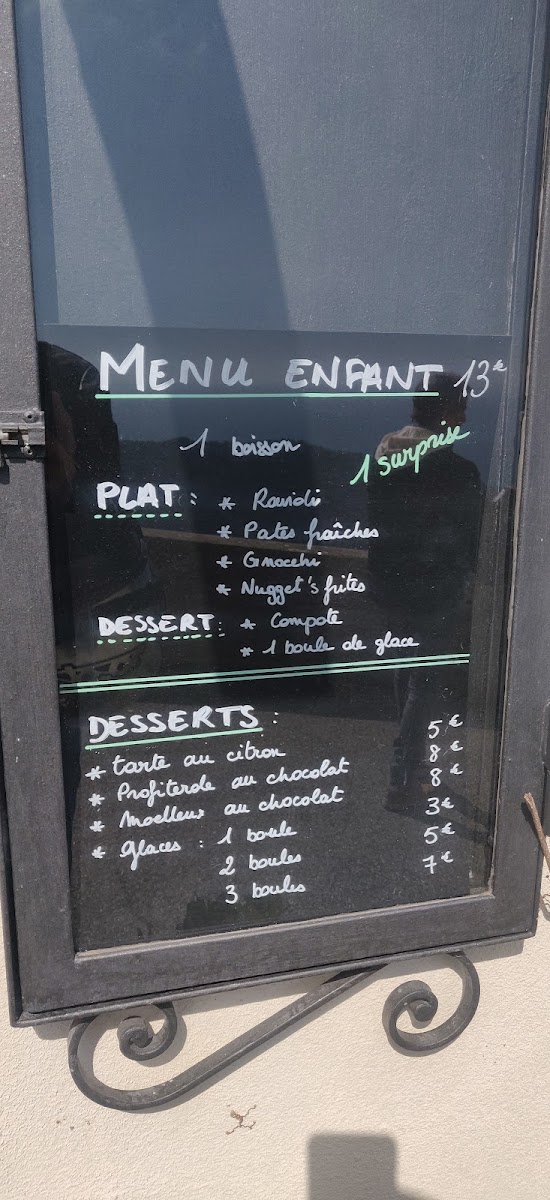 MENU ENFANT 13€
1 boisson
1 surprise
PLAT : * Ravioli
* Pates fraîches
* Gnocchi
* Nugget's frites
DESSERT : * Compote
* 1 boule de glace
DESSERTS :
* tarte au citron 5€
* Profiterole au chocolat 8€
* Moelleux au chocolat 8€
* glaces : 1 boule 3€
2 boules 5€
3 boules 7€